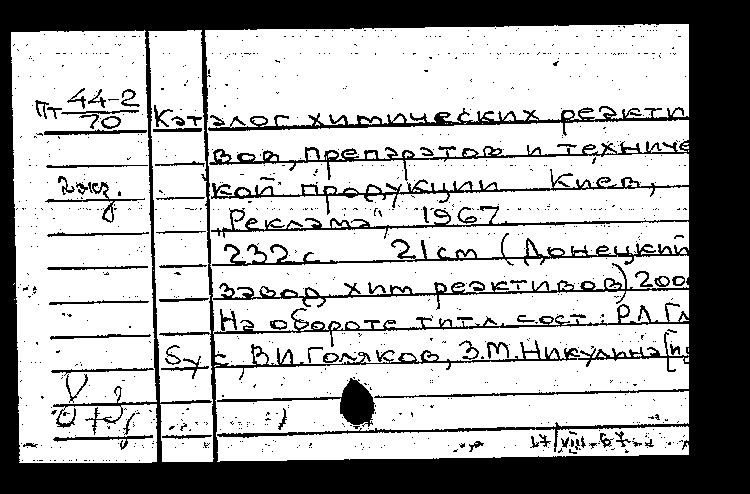 Пт 44-2/70 Каталог химических реакти
вов, препаратов и техниче
2 экз. кой продукции Киев,
„Реклама", 1967.
232 с. 21 см (Донецкий
завод хим реактивов). 2000
На обороте тит. л. сост.: Р.Л. Гл
бус, В.И. Голяков, З.М. Никулина [и
17/VIII-67